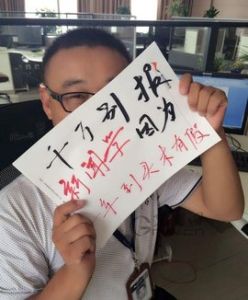 千万别报
新闻学 因为
年到头木有假